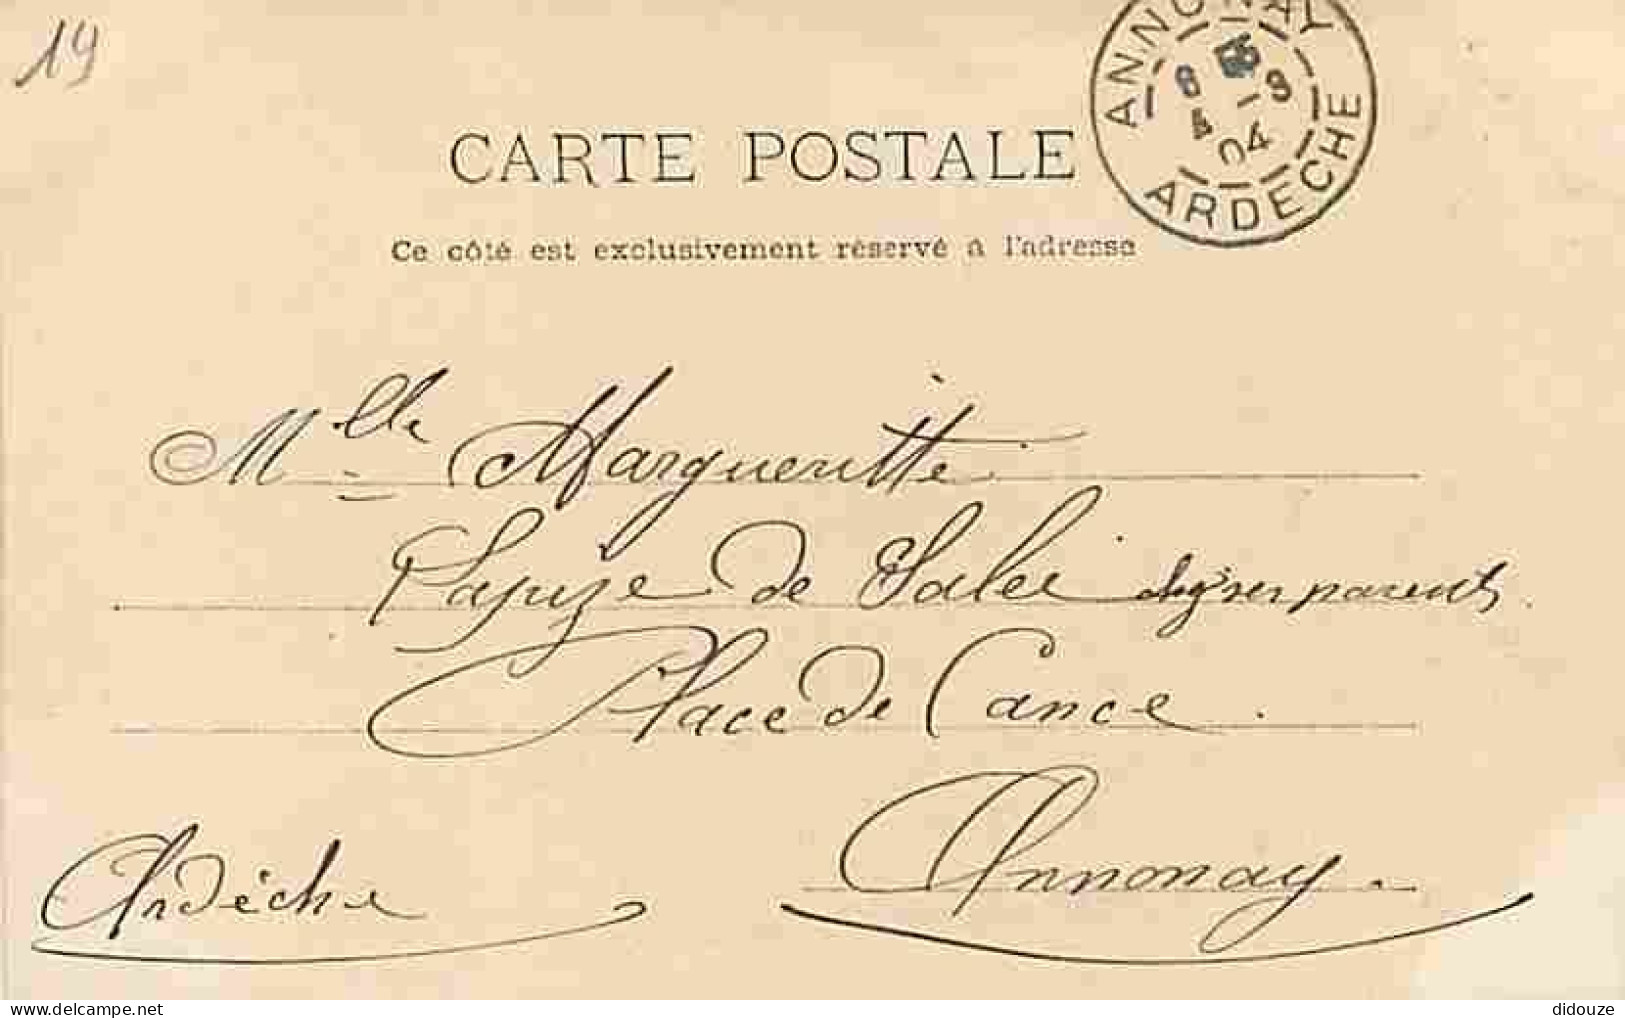 19
ANNONAY
8 - 3
04
ARDÈCHE
CARTE POSTALE
Ce côté est exclusivement réservé à l'adresse
Mlle Margueritte
de Salee parents
Place de Cance.
Annonay.
Ardèche
didouze